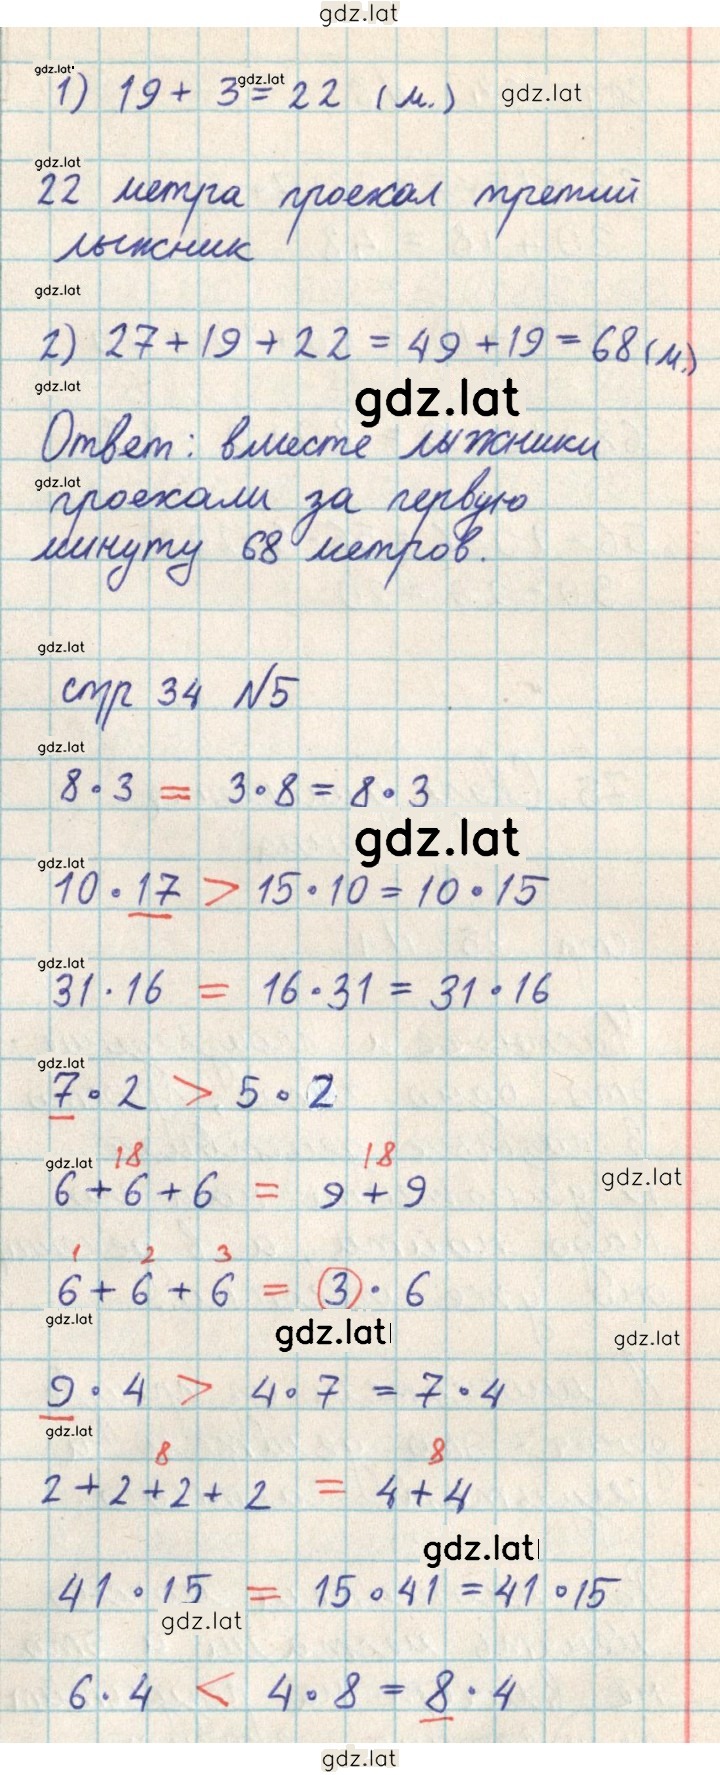 gdz.lat
gdz.lat
gdz.lat
1) 19 + 3 = 22 (м.)
gdz.lat
gdz.lat
22 метра проехал третий
лыжник
gdz.lat
2) 27 + 19 + 22 = 49 + 19 = 68 (м.)
gdz.lat
gdz.lat
Ответ: вместе лыжники
gdz.lat
проехали за первую
минуту 68 метров.
gdz.lat
стр 34 №5
gdz.lat
8 · 3 = 3 · 8 = 8 · 3
gdz.lat
gdz.lat
10 · 17 > 15 · 10 = 10 · 15
gdz.lat
31 · 16 = 16 · 31 = 31 · 16
gdz.lat
7 · 2 > 5 · 2
18 18
gdz.lat
gdz.lat
6 + 6 + 6 = 9 + 9
1 2 3
6 + 6 + 6 = 3 · 6
gdz.lat
gdz.lat
gdz.lat
9 · 4 > 4 · 7 = 7 · 4
gdz.lat
8 8
2 + 2 + 2 + 2 = 4 + 4
gdz.lat
41 · 15 = 15 · 41 = 41 · 15
gdz.lat
6 · 4 < 4 · 8 = 8 · 4
gdz.lat